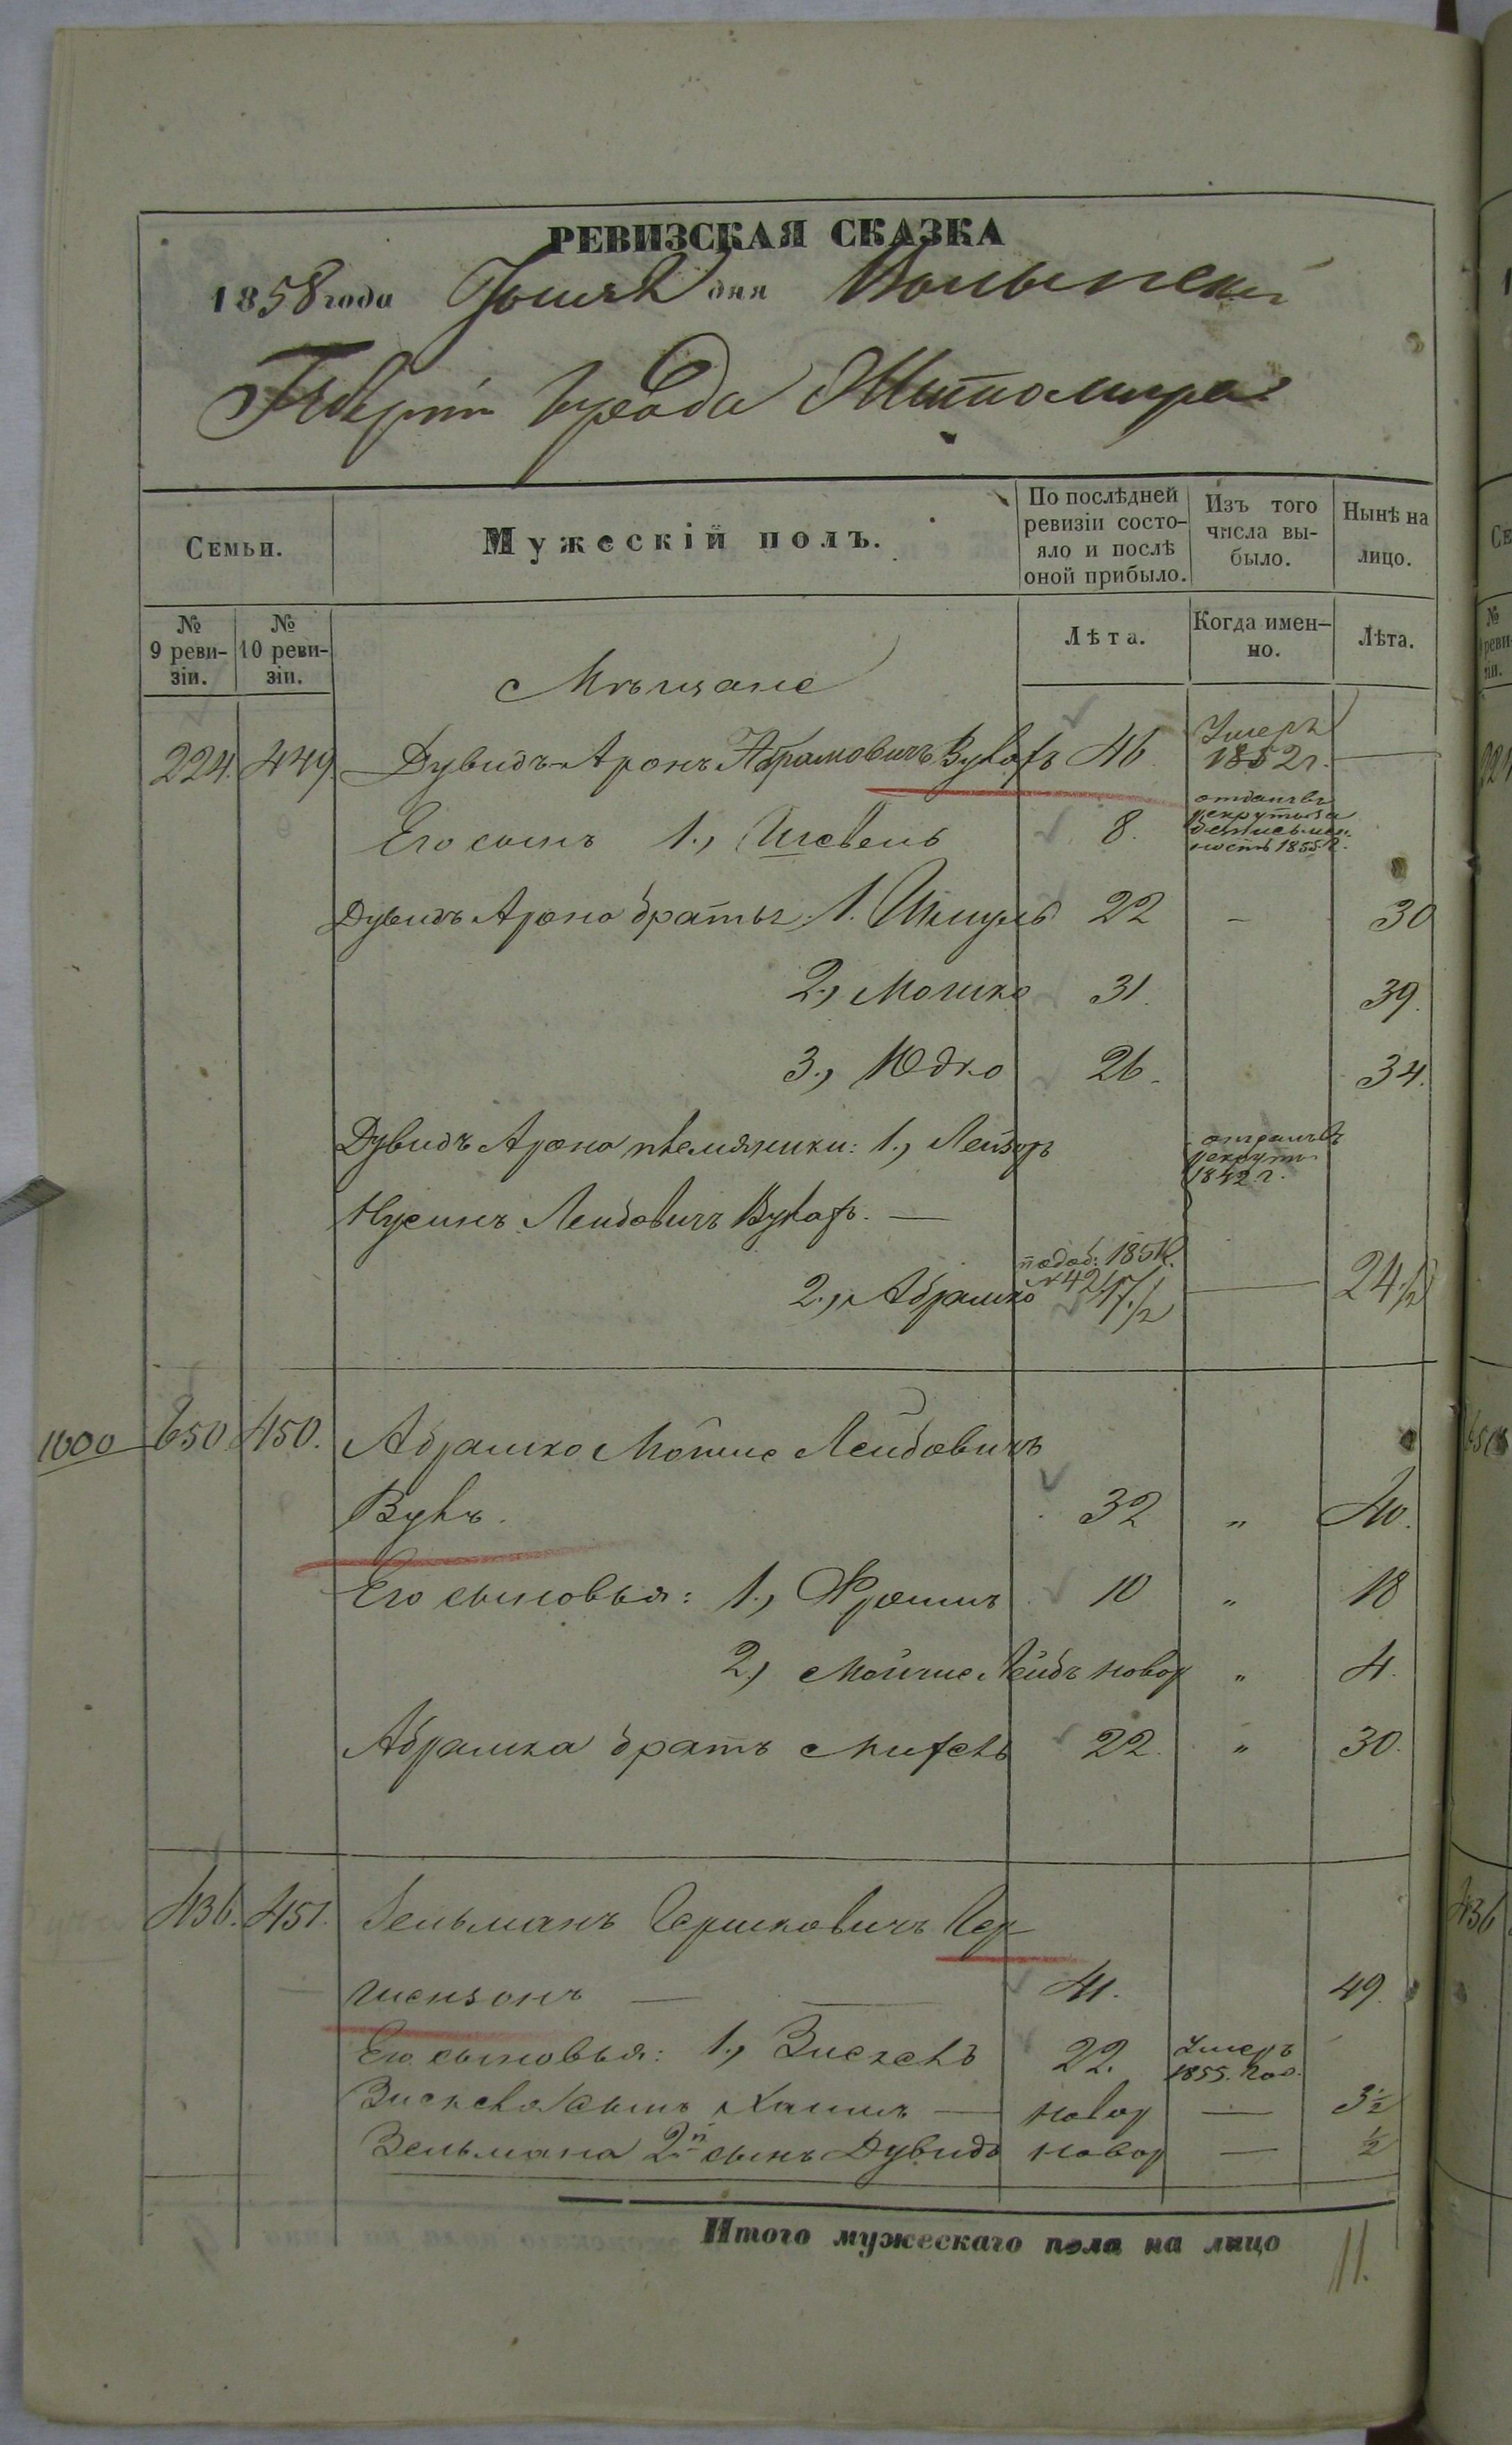 РЕВИЗСКАЯ СКАЗКА
1858 года Іюня дня Волынской
Губерніи города Житомира
Семьи.
Мужескій полъ.
По послѣдней ревизіи состо-
яло и послѣ оной прибыло.
Изъ того числа вы-
было.
Нынѣ на лицо.
№ 9 реви-
зіи.
№ 10 реви-
зіи.
Лѣта.
Когда имен-
но.
Лѣта.
Мѣщане
224. 449 Дувидъ-Аронъ Абрамовичъ 46. Умеръ 1852 г. —
Его сынъ 1., 8. отданъ въ рекруты за 1855 г.
Дувидъ Арона братья 1. Шмуль 22 - 30
2., Мошко 31. 39.
3., Юдко 26. 34.
Дувидъ Арона племяники: 1., Лейзоръ
рекруты 1842 г.
Нусинъ Лейбовичъ —
2., Абрамко 1851 г. №42 17 1/2 — 24 1/2
1000 650 450. Абрамко Мойше Лейбовичъ
Вукъ. 32 " 40.
Его сыновья: 1., Фроимъ 10 " 18
2., Мойше Лейбъ новор " 4.
Абрамка братъ 22. " 30.
436. 451. Зельманъ Гершковичъ Гер-
шензонъ — 41. 49.
Его сыновья: 1., Зискель 22. Умеръ 1855. год.
Зискеля сынъ Хаимъ — новор — 3 1/2
Зельмана 2й сынъ Дувидъ новор — 1/2
Итого мужескаго пола на лицо 11.